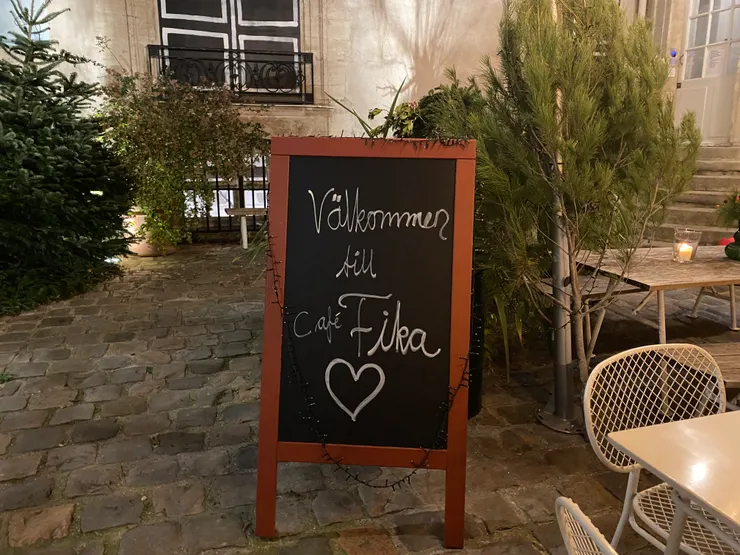 Välkommen
till
Café Fika